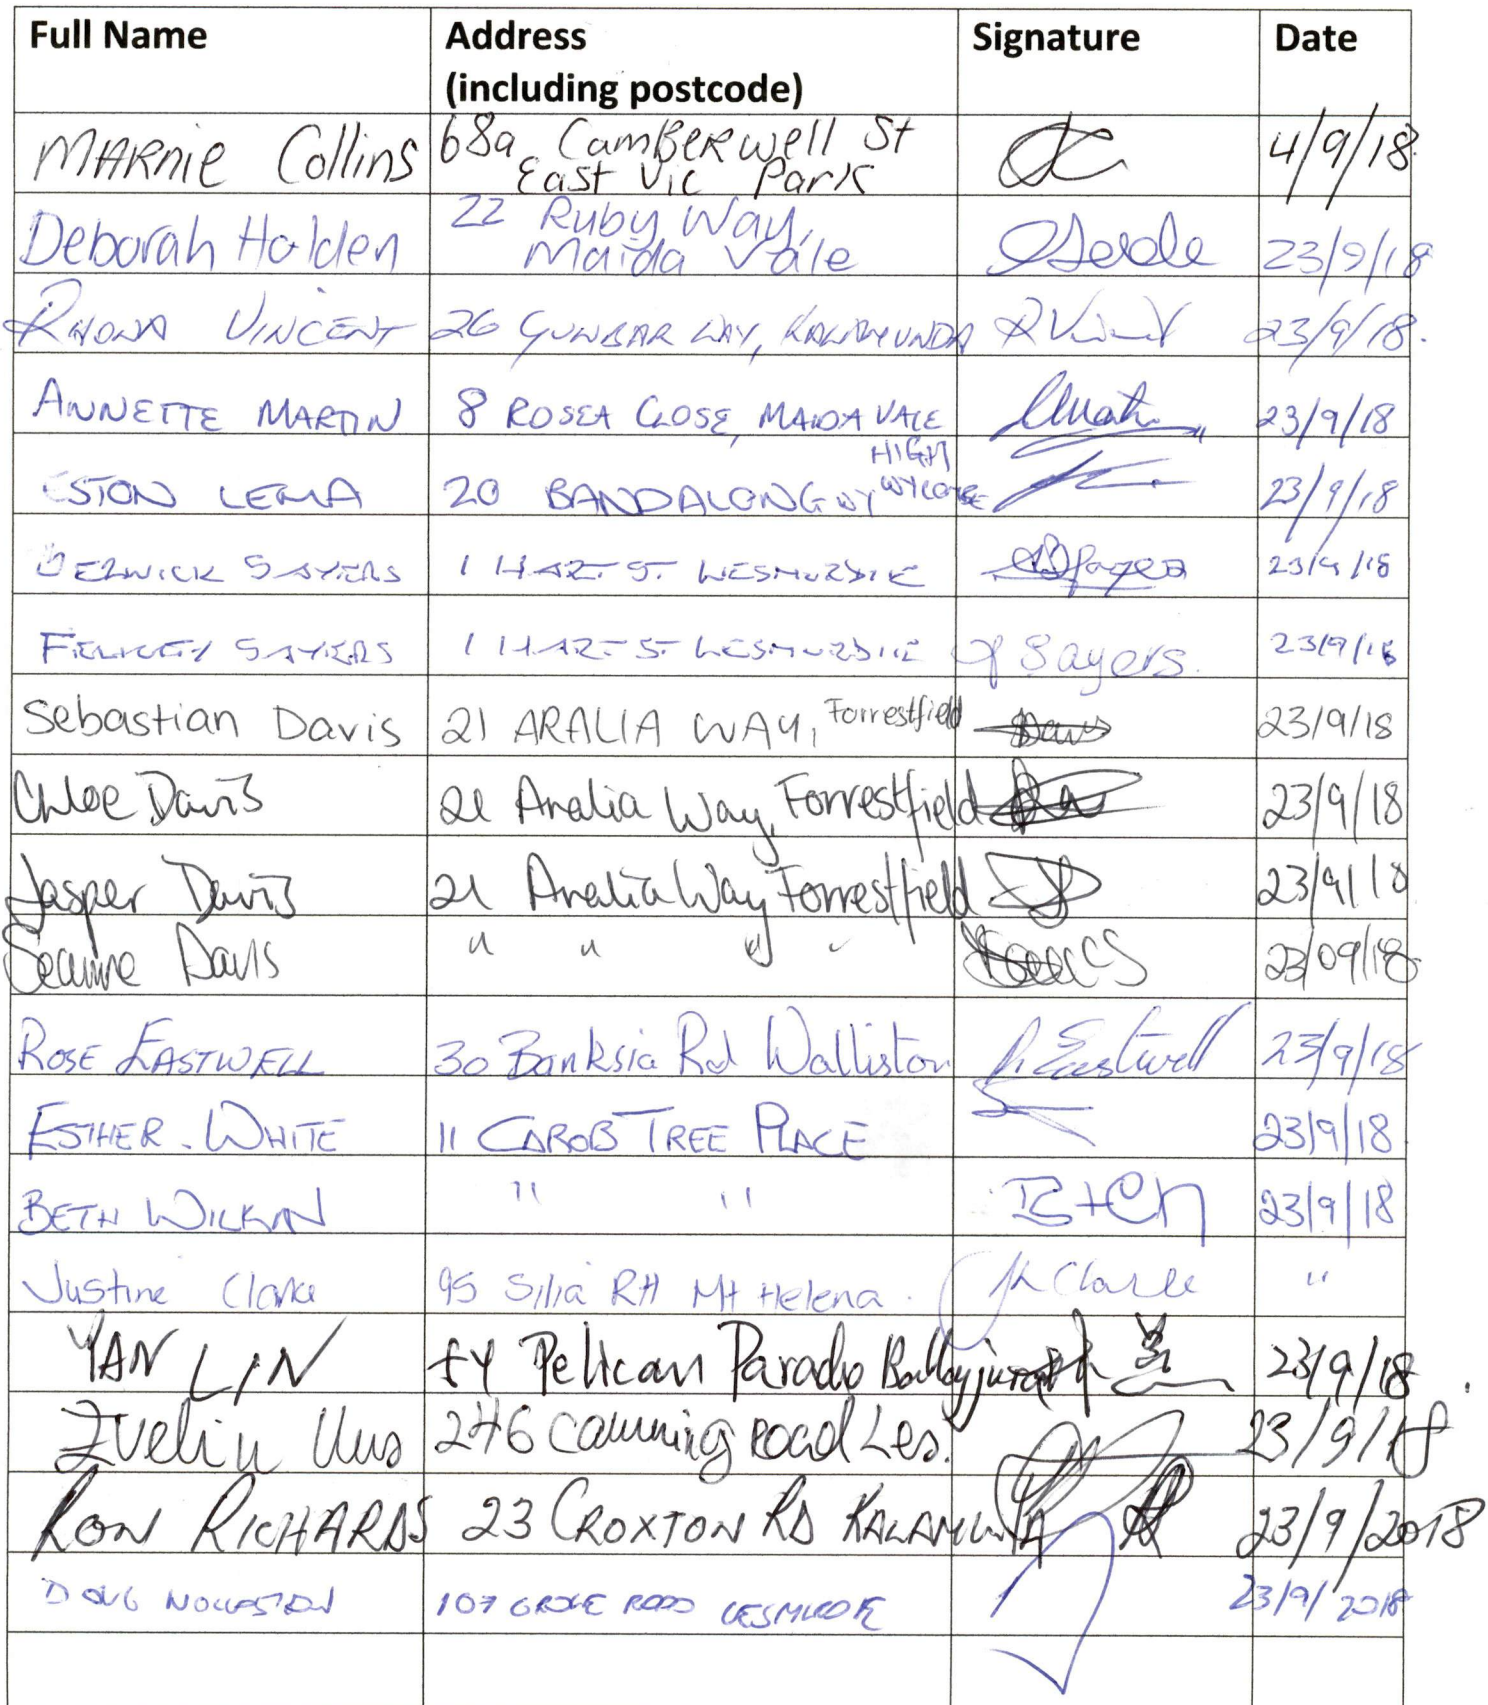 Full Name Address Signature Date
(including postcode)
MARNIE Collins 68a CamBERwell St 4/9/18
East Vic Park
Deborah Holden 22 Ruby Way, 23/9/18
Maida Vale
RHONA VINCENT 26 GUNBAR WAY, KALAMUNDA R Vincent 23/9/18.
ANNETTE MARTIN 8 ROSEA CLOSE, MAIDA VALE 23/9/18
HIGH
ESTON LEMA 20 BANDALONG WY WYCOMBE 23/9/18
BERWICK SAYERS 1 HART ST LESMURDIE 23/9/18
FELICITY SAYERS 1 HART ST LESMURDIE Sayers. 23/9/18
Sebastian Davis 21 ARALIA WAY, Forrestfield Davis 23/9/18
Chloe Davis 21 Aralia Way, Forrestfield 23/9/18
Jasper Davis 21 Aralia Way Forrestfield 23/9/18
Davis " " " " 23/09/18
ROSE EASTWELL 30 Banksia Rd Walliston R. Eastwell 23/9/18
ESTHER. WHITE 11 CAROB TREE PLACE 23/9/18
BETH WILKIN " " Beth 23/9/18
Justine Clarke 95 Mt Helena. Clarke "
YAN LIN Pelican Parade Ballajura 23/9/18.
Evelin Uus 246 Canning Road Les. 23/9/18
RON RICHARDS 23 CROXTON RD KALAMUNDA 23/9/2018
DOUG 107 GROVE ROAD LESMURDIE 23/9/2018